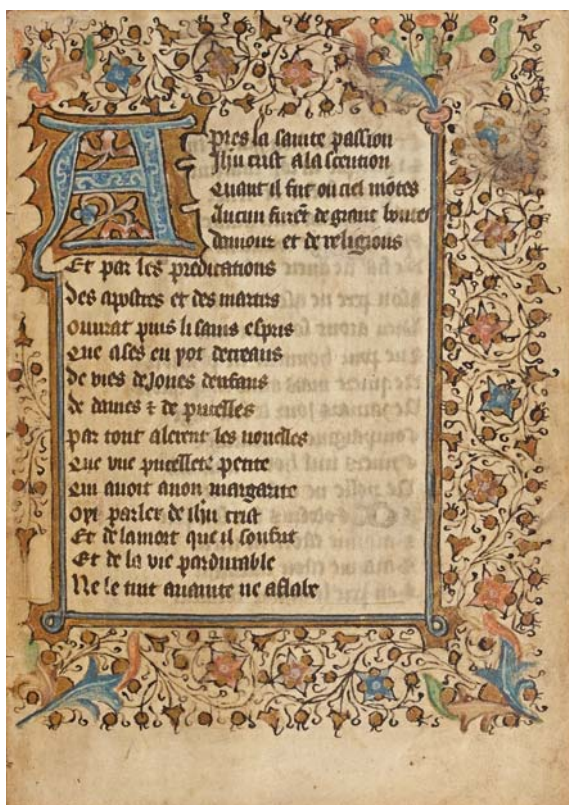 Apres la sainte passion
Ihu crist a la scention
Quant il fut ou ciel mōtes
Aucun furēt de grant bontes
damour et de religions
Et par les predications
des apostres et des martirs
ouurat puis li sains espris
Que ases en yot decreans
de vies de Joues denfans
de dames ⁊ de pucelles
par tout alerent les nouelles
Que vne pucellete petite
Qui auoit anon margarite
Oyt parler de ihu crist
Et de la mort que il soufrit
Et de la vie pardurable
Ne le tint a ne a flabe